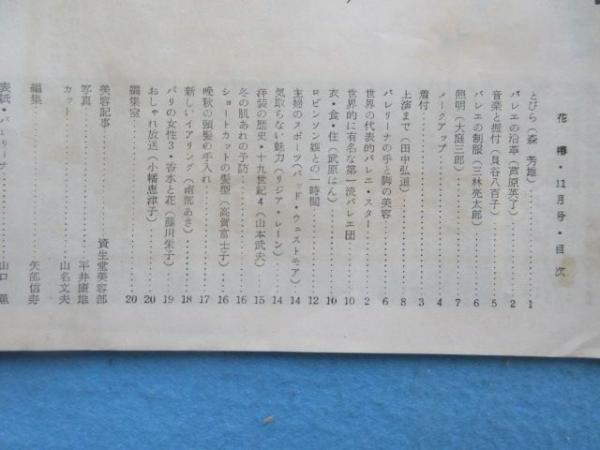 花椿・11月号・目次
とびら（森芳雄）……1
バレエの沿革（芦原英了）……2
音楽と振付（貝谷八百子）……5
バレエの制服（三林亮太郎）……6
照明（大庭三郎）……7
メークアップ……4
着付……3
上演まで（田中弘道）……8
バレリーナの手と脚の美容……6
世界の代表的バレエ・スター……2
世界的に有名な第一流バレエ団……10
衣・食・住（武原はん）……10
ロビンソン嬢との一時間……12
主婦のスポーツ（バッド・ウェストモア）……14
気取らない魅力（リジア・レーン）……14
洋装の歴史・十九世紀4（山本武夫）……15
冬の肌あれの予防……16
ショートカットの髪型（高賀富士子）……16
晩秋の頭髪の手入れ……17
新しいイアリング（南部あき）……18
パリの女性3・香水と花（藤川朱子）……19
おしゃれ放送（小幡恵津子）……20
編集室……20
美容記事……資生堂美容部
写真……平井康雄
カット……山名文夫
編集……矢部信寿
表紙・バレリーナ……山口